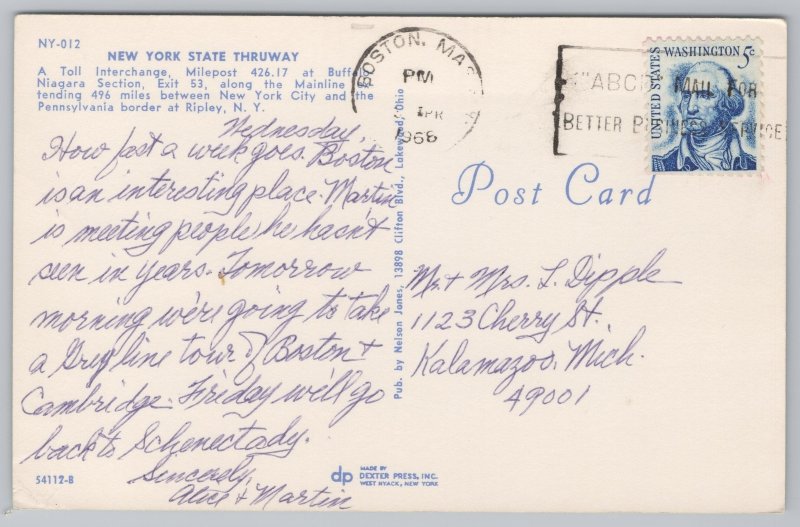 NY-012
NEW YORK STATE THRUWAY
A Toll Interchange, Milepost 426.17 at Buffalo
Niagara Section, Exit 53, along the Mainline
tending 496 miles between New York City and the
Pennsylvania border at Ripley, N. Y.
Wednesday,
How fast a week goes. Boston
is an interesting place. Martin
is meeting people he hasn't
seen in years. Tomorrow
morning we're going to take
a Grey line tour of Boston +
Cambridge. Friday we'll go
back to Schenectady.
Sincerely,
Alice + Martin
54112-B
Pub. by Nelson Jones, 13898 Clifton Blvd., Lakewood, Ohio
dp
MADE BY
DEXTER PRESS, INC.
WEST NYACK, NEW YORK
BOSTON, MASS
PM
APR
1968
"ABCD" MAIL FOR
BETTER BUSINESS SERVICE
UNITED STATES
WASHINGTON 5c
Post Card
Mr. + Mrs. L. Dipple
1123 Cherry St.
Kalamazoo, Mich.
49001